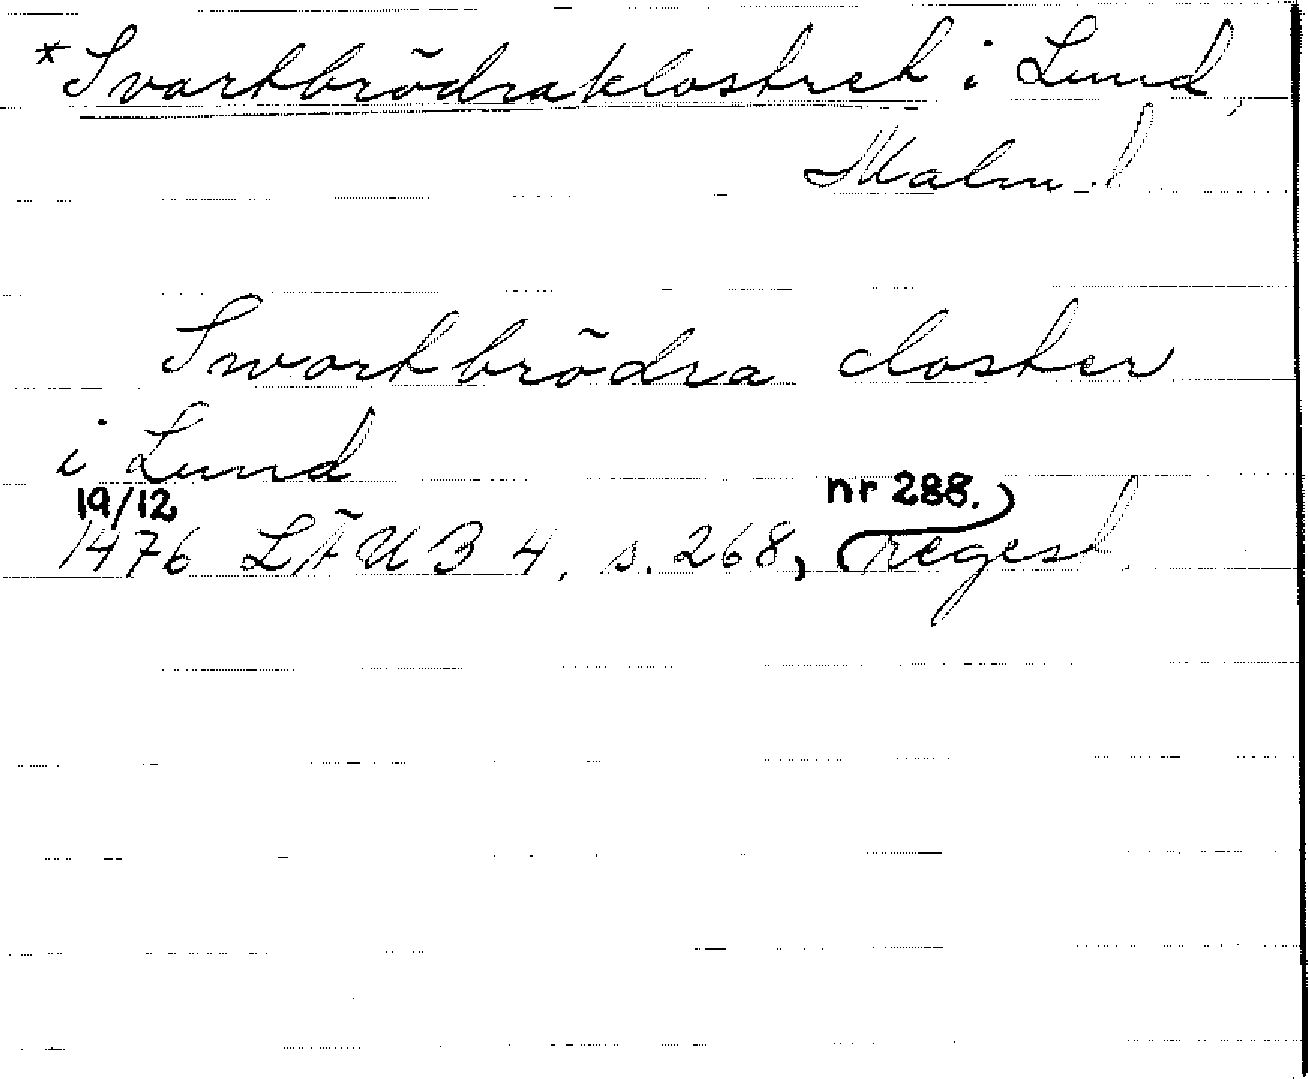 *Svartbrödraklostret i Lund,
Malm. l
Swortbrödra closter
i Lund
19/12 nr 288.
1476 LÄUB 4, s. 268, regest.